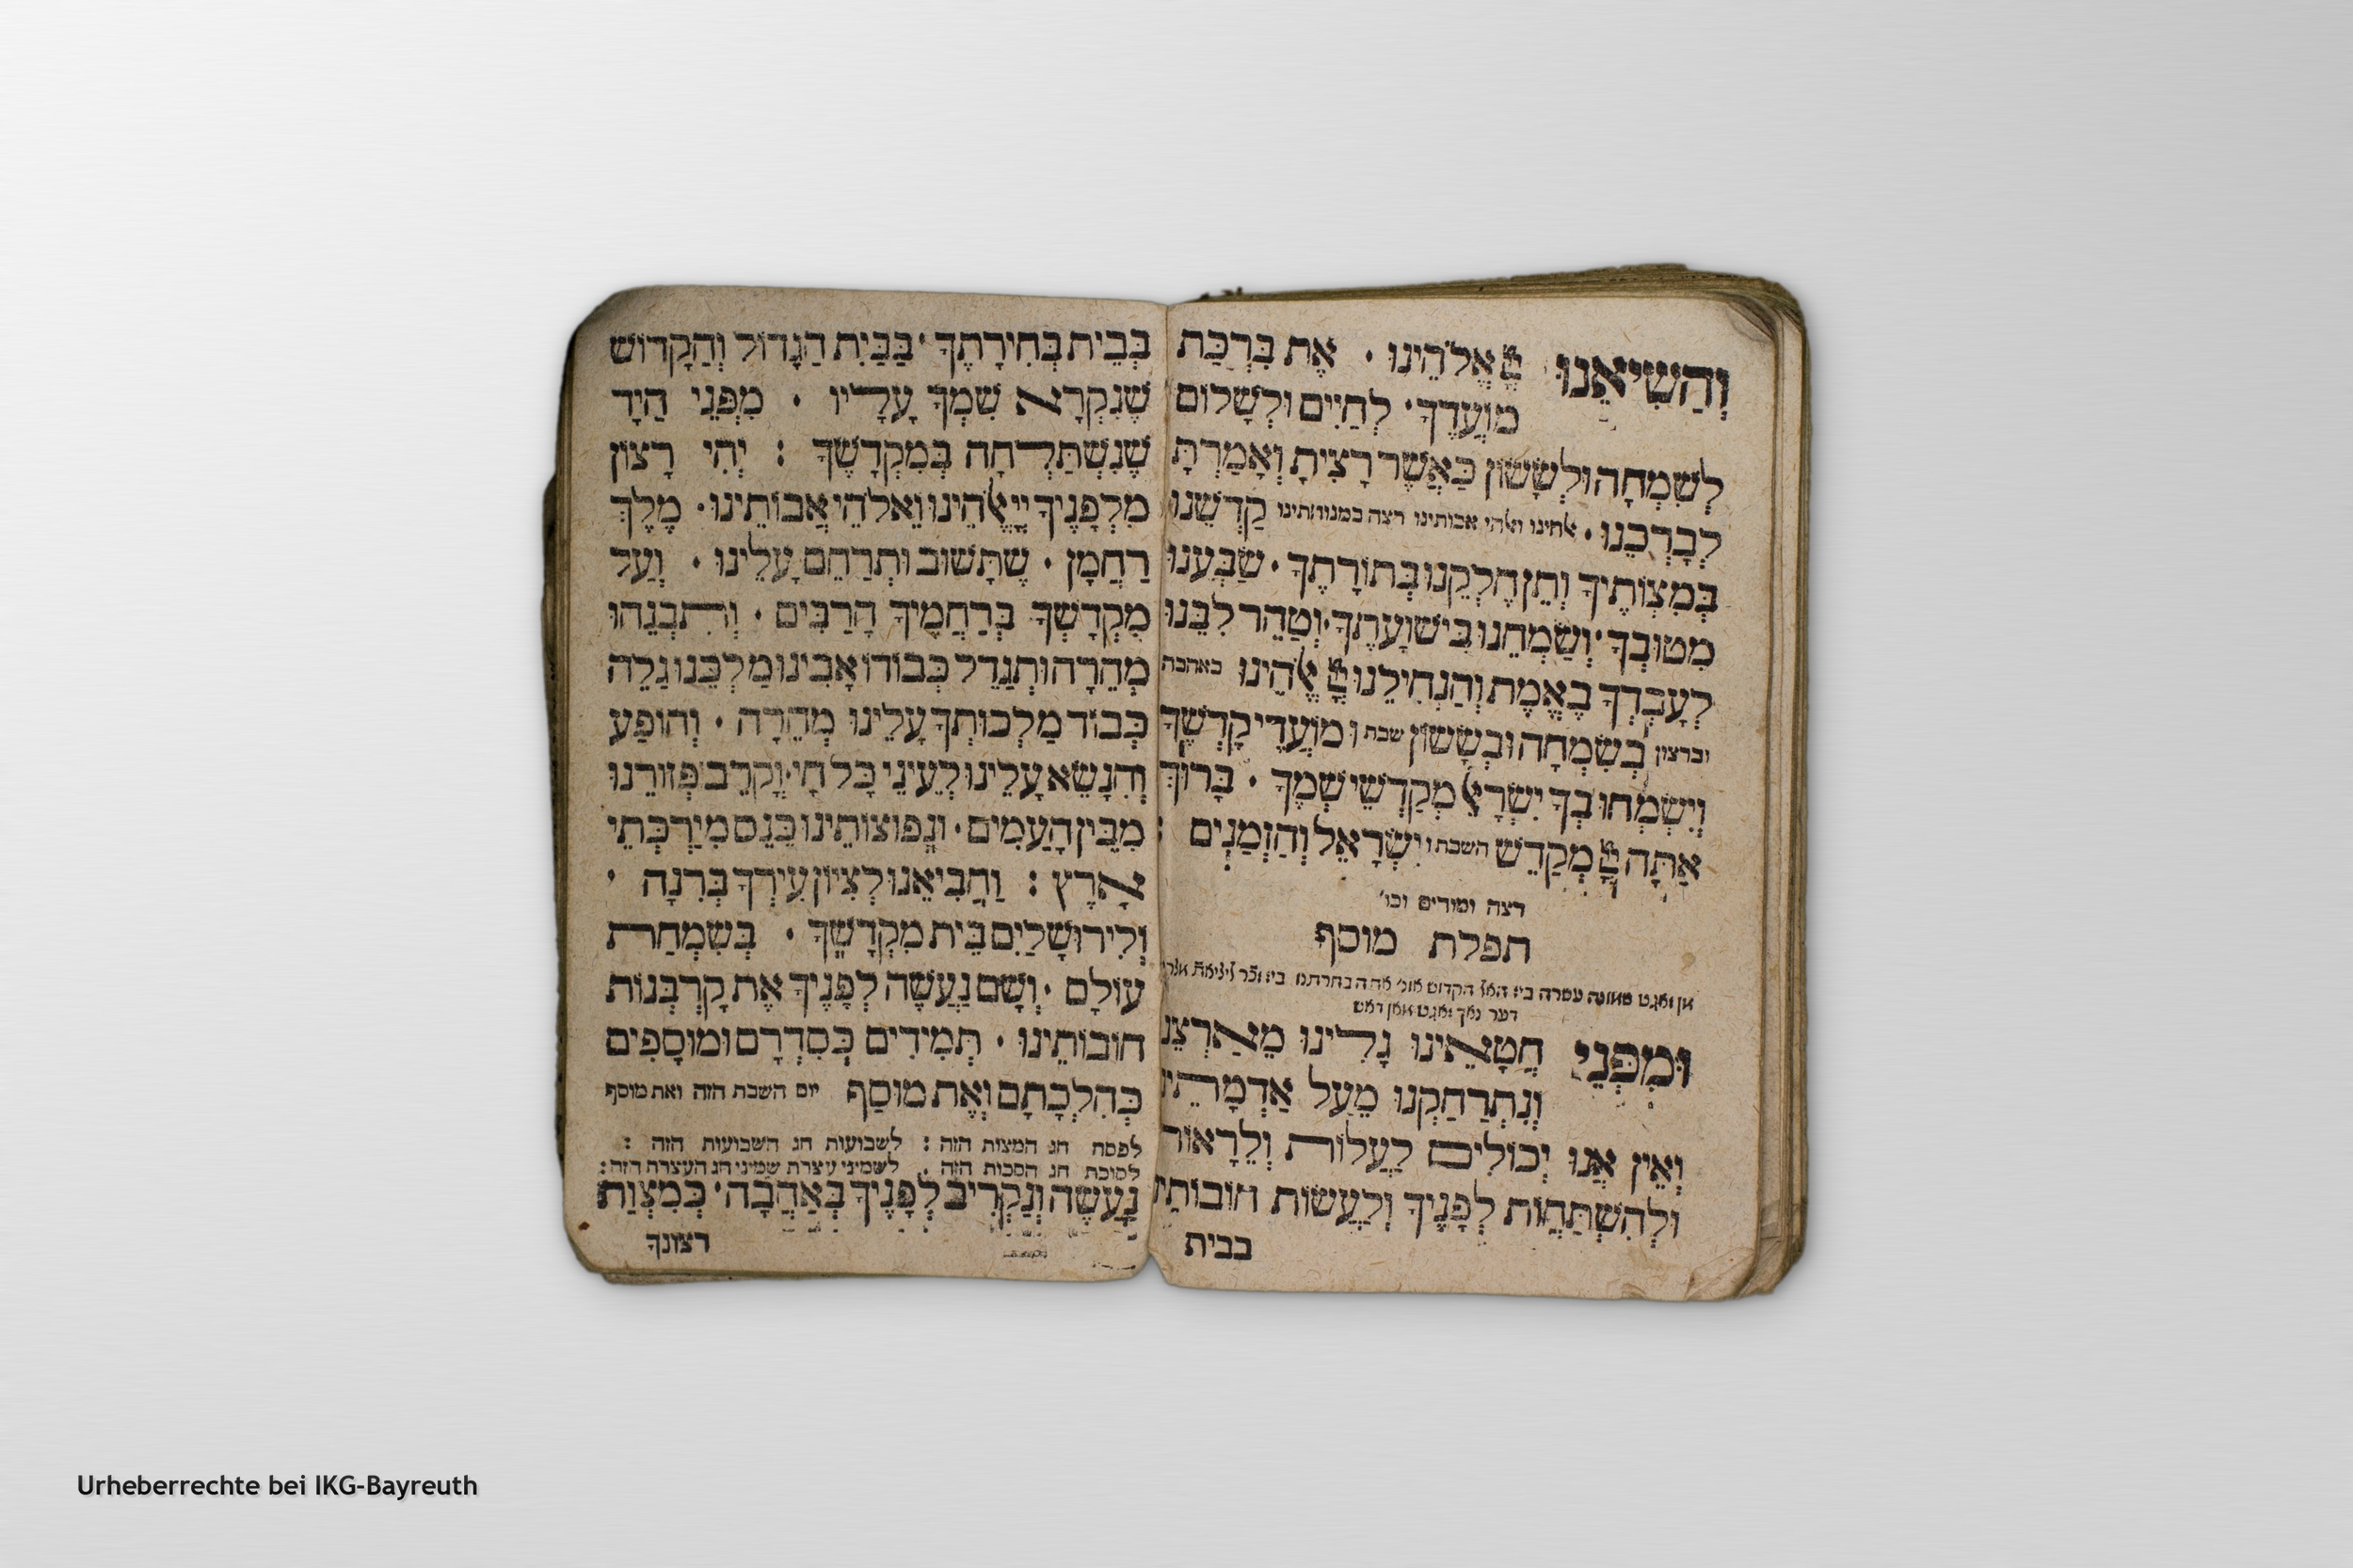 וְהַשִׂיאֵנוּ יְיָ אֱלֹהֵינוּ · אֶת בִּרְכַּת
מוֹעֲדֶךָ · לְחַיִּים וּלְשָׁלוֹם
לְשִׂמְחָה וּלְשָׂשׂוֹן כַּאֲשֶׁר רָצִיתָ וְאָמַרְתָּ
לְבָרְכֵנוּ · אלהינו ואלהי אבותינו רצה במנוחתינו קַדְּשֵׁנוּ
בְּמִצְוֹתֶיךָ וְתֵן חֶלְקֵנוּ בְּתוֹרָתֶךָ · שַׂבְּעֵנוּ
מִטּוּבְךָ · וְשַׂמְּחֵנוּ בִּישׁוּעָתֶךָ · וְטַהֵר לִבֵּנוּ
לְעָבְדְּךָ בֶּאֱמֶת וְהַנְחִילֵנוּ יְיָ אֱלֹהֵינוּ באהבה
וברצון בְּשִׂמְחָה וּבְשָׂשׂוֹן שבת וּ מוֹעֲדֵי קָדְשֶׁךָ
וְיִשְׂמְחוּ בְךָ יִשְׂרָאֵל מְקַדְּשֵׁי שְׁמֶךָ · בָּרוּךְ
אַתָּה יְיָ מְקַדֵּשׁ השבת ו יִשְׂרָאֵל וְהַזְּמַנִּים :
רצה ומודים וכו'
תפלת מוסף
דער נאך זאגט מאן דאש
וּמִפְּנֵי חֲטָאֵינוּ גָּלִינוּ מֵאַרְצֵנוּ
וְנִתְרַחַקְנוּ מֵעַל אַדְמָתֵינוּ
וְאֵין אֲנוּ יְכוֹלִים לַעֲלוֹת וְלֵרָאוֹת
וּלְהִשְׁתַּחֲוֹת לְפָנֶיךָ וְלַעֲשׂוֹת חוֹבוֹתֵינוּ
בבית
בְּבֵית בְּחִירָתֶךָ · בַּבַּיִת הַגָּדוֹל וְהַקָּדוֹשׁ
שֶׁנִּקְרָא שִׁמְךָ עָלָיו · מִפְּנֵי הַיָּד
שֶׁנִּשְׁתַּלְּחָה בְּמִקְדָּשֶׁךָ : יְהִי רָצוֹן
מִלְּפָנֶיךָ יְיָ אֱלֹהֵינוּ וֵאלֹהֵי אֲבוֹתֵינוּ · מֶלֶךְ
רַחֲמָן · שֶׁתָּשׁוּב וּתְרַחֵם עָלֵינוּ · וְעַל
מִקְדָּשְׁךָ בְּרַחֲמֶיךָ הָרַבִּים · וְתִבְנֵהוּ
מְהֵרָה וּתְגַדֵּל כְּבוֹדוֹ אָבִינוּ מַלְכֵּנוּ גַלֵּה
כְּבוֹד מַלְכוּתְךָ עָלֵינוּ מְהֵרָה · וְהוֹפַע
וְהִנָּשֵׂא עָלֵינוּ לְעֵינֵי כָּל חָי · וְקָרֵב פְּזוּרֵנוּ
מִבֵּין הָעַמִּים · וּנְפוּצוֹתֵינוּ כַּנֵּס מִיַּרְכְּתֵי
אָרֶץ : וַהֲבִיאֵנוּ לְצִיּוֹן עִירְךָ בְּרִנָּה ·
וְלִירוּשָׁלַיִם בֵּית מִקְדָּשְׁךָ · בְּשִׂמְחַת
עוֹלָם · וְשָׁם נַעֲשֶׂה לְפָנֶיךָ אֶת קָרְבְּנוֹת
חוֹבוֹתֵינוּ · תְּמִידִים כְּסִדְרָם וּמוּסָפִים
כְּהִלְכָתָם וְאֶת מוּסַף יום השבת הזה ואת מוסף
לפסח חג המצות הזה : לשבועות חג השבועות הזה :
לסוכת חג הסכות הזה . לשמיני עצרת שמיני חג העצרת הזה :
נַעֲשֶׂה וְנַקְרִיב לְפָנֶיךָ בְּאַהֲבָה · כְּמִצְוַת
רצונך
Urheberrechte bei IKG-Bayreuth